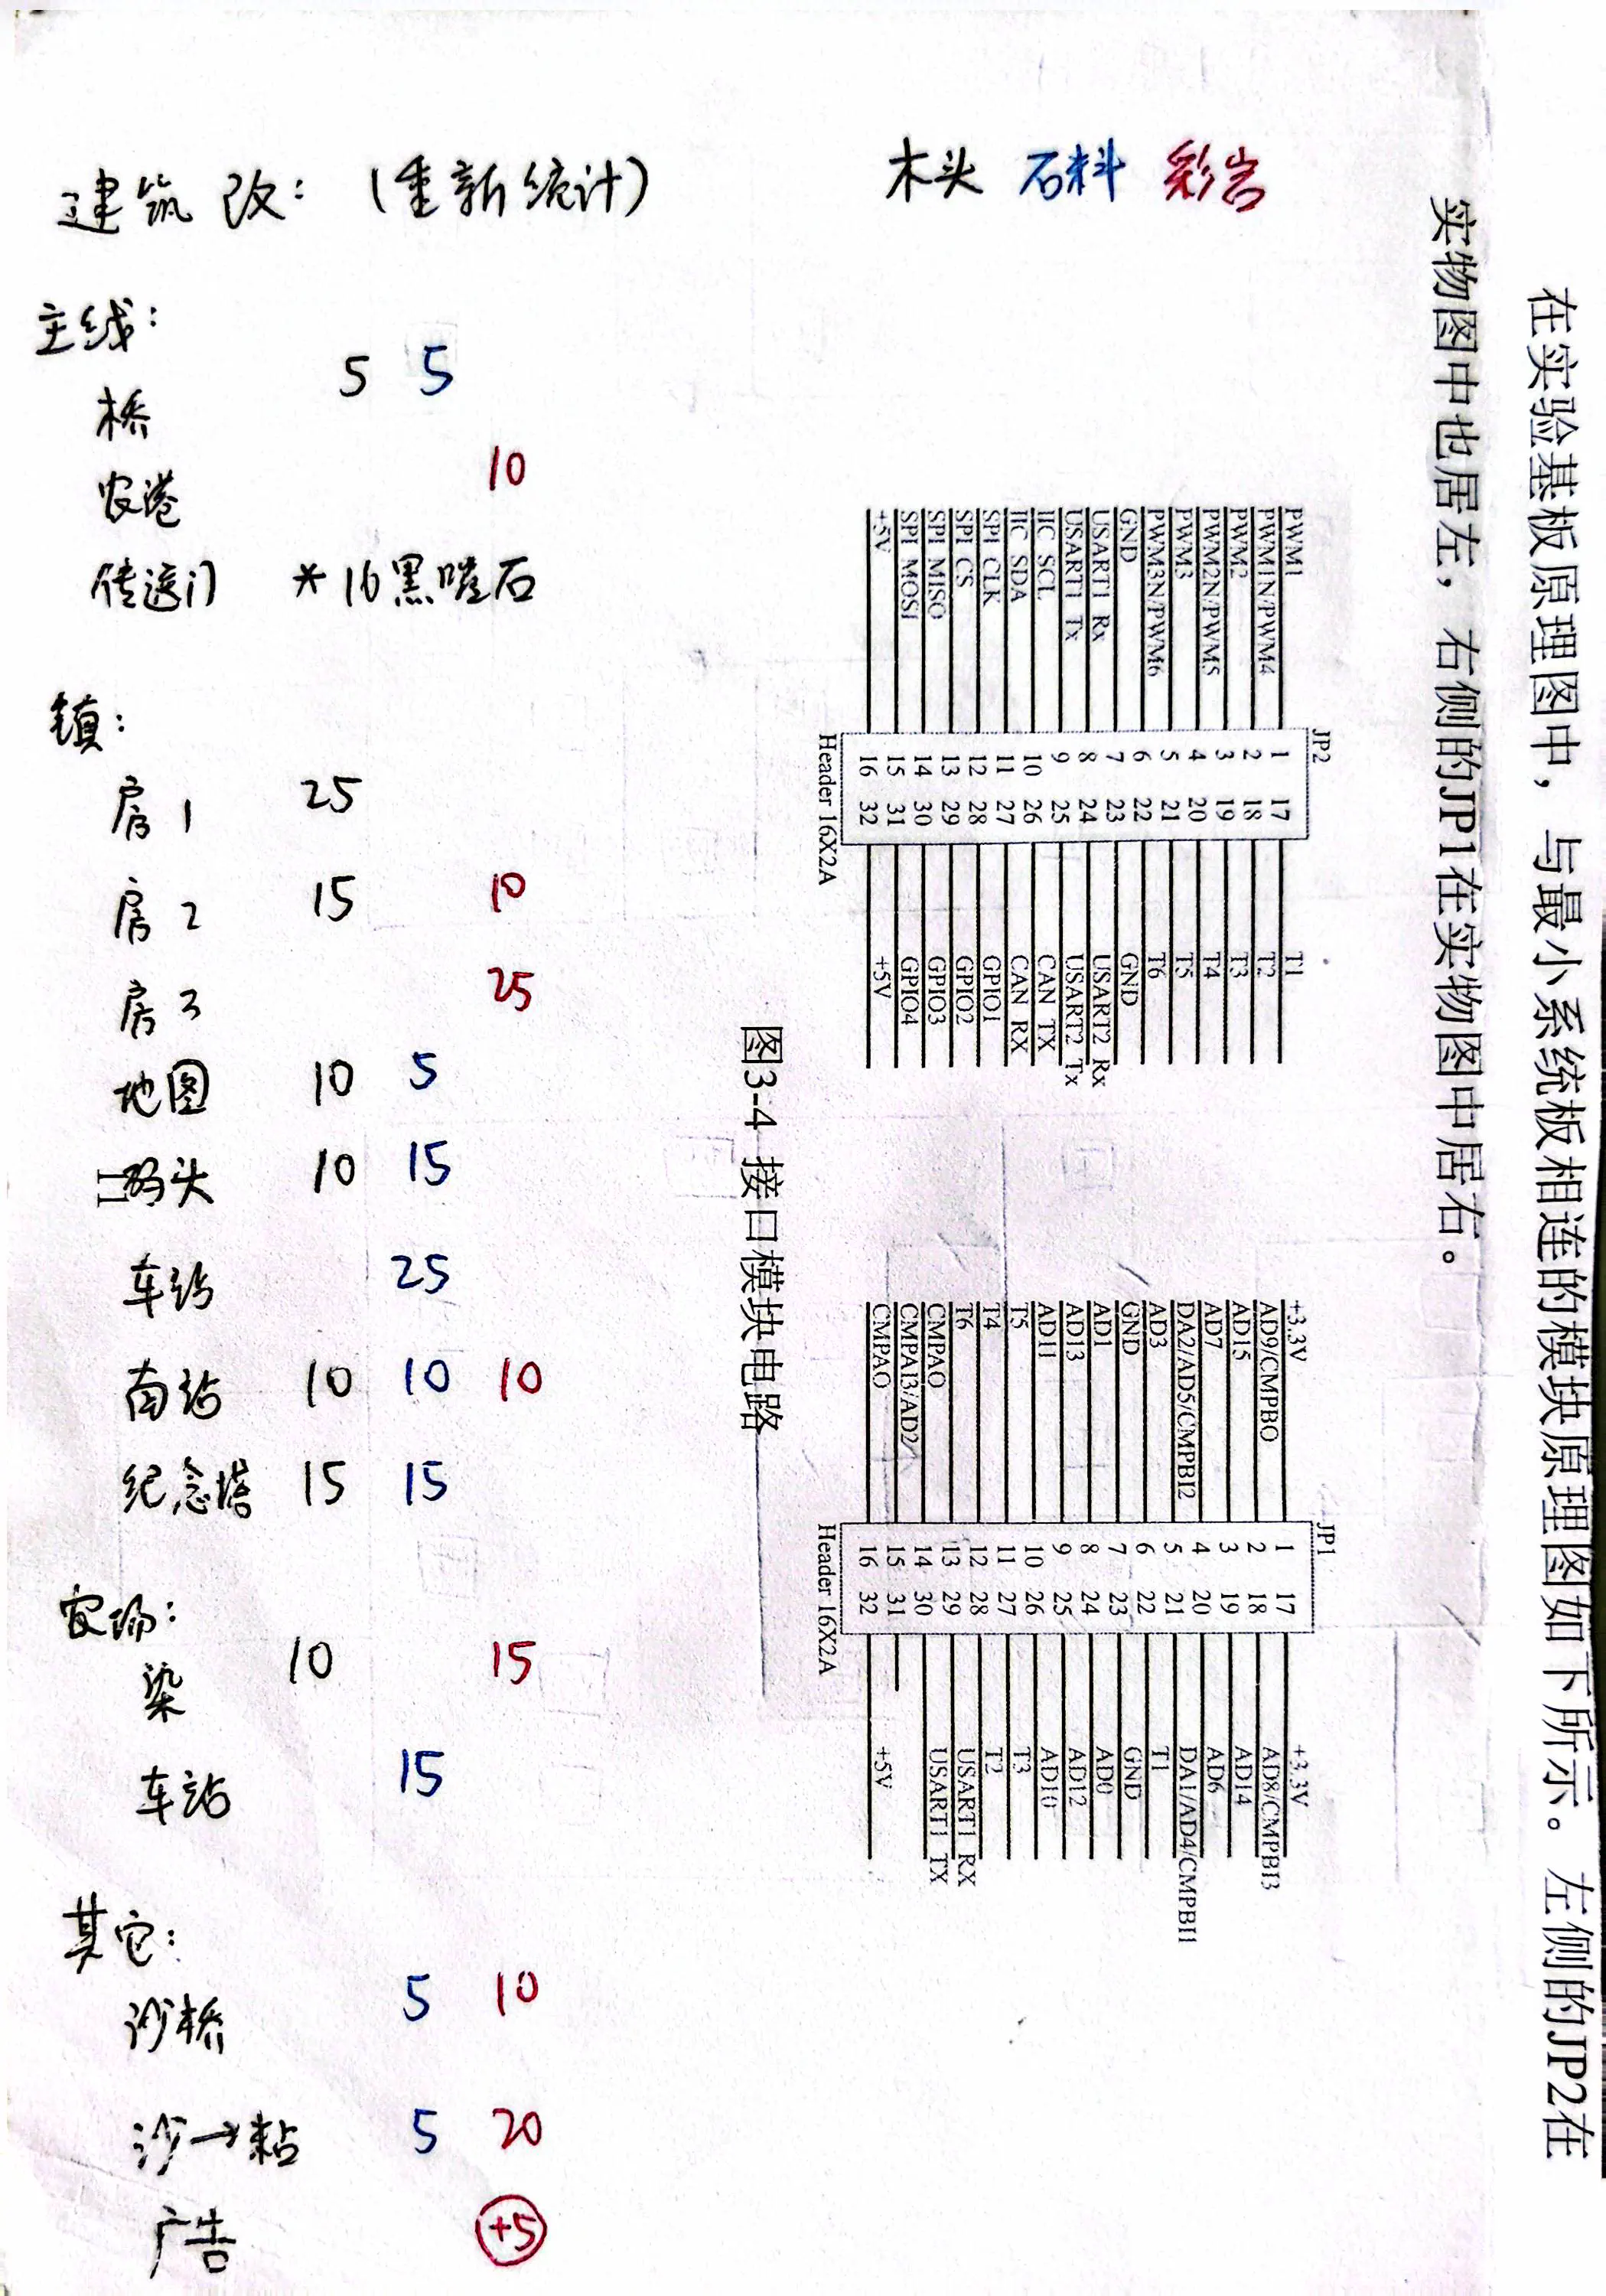 建筑改:(重新统计) 木头 石料 彩岩
主线:
桥 5 5
农港 10
传送门 *16黑曜石
镇:
房1 25
房2 15 10
房3 25
地图 10 5
码头 10 15
车站 25
南站 10 10 10
纪念塔 15 15
农场:
染 10 15
车站 15
其它:
沙桥 5 10
沙→粘 5 20
广告 +5
在实验基板原理图中,与最小系统板相连的模块原理图如下所示。左侧的JP2在
实物图中也居左,右侧的JP1在实物图中居右。
JP2
PWM1 1 17 T1
PWM1N/PWM4 2 18 T2
PWM2 3 19 T3
PWM2N/PWM5 4 20 T4
PWM3 5 21 T5
PWM3N/PWM6 6 22 T6
GND 7 23 GND
USART1 Rx 8 24 USART2 Rx
USART1 Tx 9 25 USART2 Tx
IIC SCL 10 26 CAN TX
IIC SDA 11 27 CAN RX
SPI CLK 12 28 GPIO1
SPI CS 13 29 GPIO2
SPI MISO 14 30 GPIO3
SPI MOSI 15 31 GPIO4
+5V 16 32 +5V
Header 16X2A
JP1
+3.3V 1 17 +3.3V
AD9/CMPBO 2 18 AD8/CMPBI3
AD15 3 19 AD14
AD7 4 20 AD6
DA2/AD5/CMPBI2 5 21 DA1/AD4/CMPBI1
AD3 6 22 T1
GND 7 23 GND
AD1 8 24 AD0
AD13 9 25 AD12
AD11 10 26 AD10
T5 11 27 T3
T4 12 28 T2
T6 13 29 USART1 RX
CMPAO 14 30 USART1 TX
CMPAI3/AD2 15 31
CMPAO 16 32 +5V
Header 16X2A
图3-4 接口模块电路